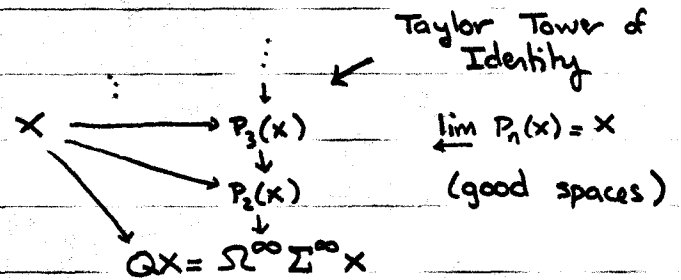 Taylor Tower of
Identity
⋮ ⋮
X → P₃(X) lim P_n(X) = X
P₂(X) (good spaces)
QX = Ω^∞ Σ^∞ X